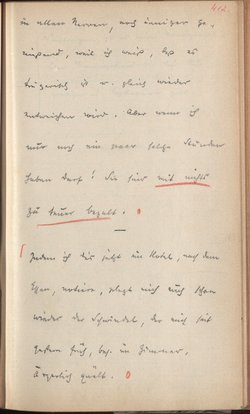 412.
in allen Nerven, noch inniger ge-
nießend, weil ich weiß, daß es
trügerisch ist u. gleich wieder
entweichen wird. Aber wenn ich
nur noch ein paar solche Stunden
haben darf! Sie sind mit nichts
zu teuer bezahlt.
Indem ich dies jetzt im Hotel, nach dem
Essen, notiere, plagt mich auch schon
wieder der Schwindel, der mich seit
gestern früh, bes. im Zimmer,
ärgerlich quält.